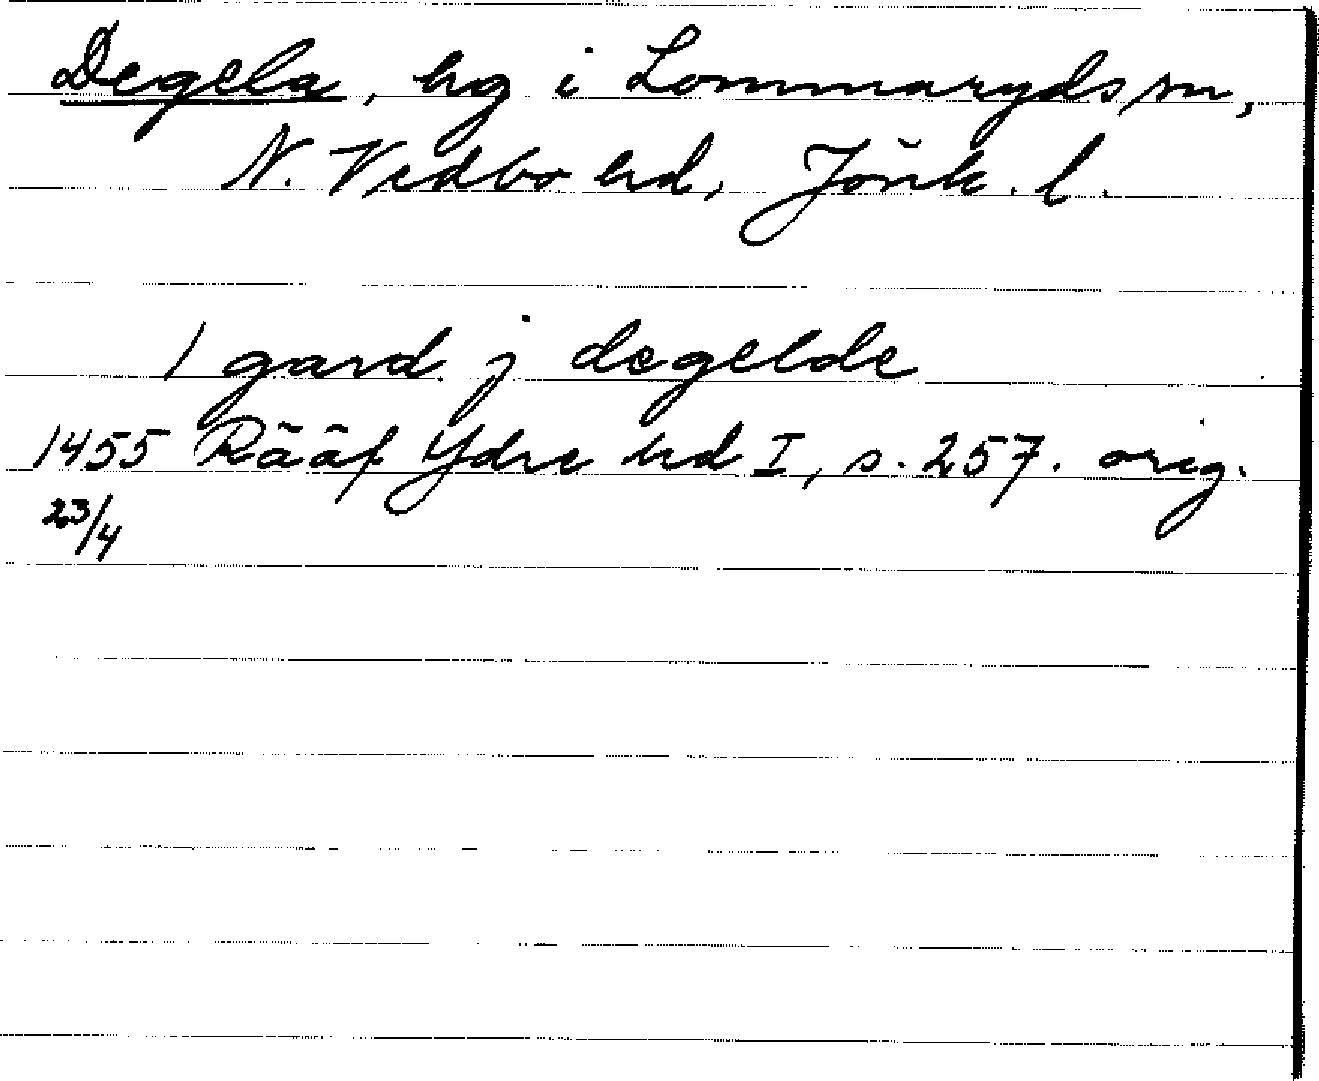 Degela, hg i Lommaryds sn,
N. Vedbo hd, Jönk. l.
1 gard j degelde
1455 Rääf Ydre hd I, s. 257. orig.
23/4